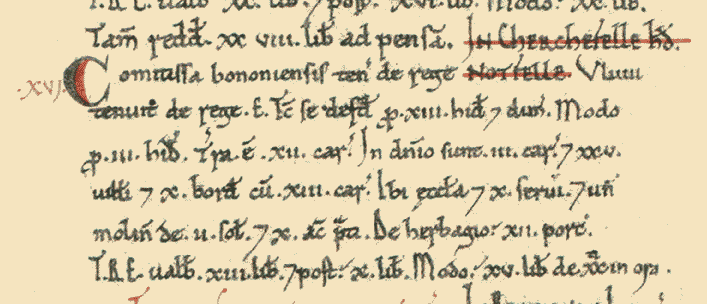 T.R.E. ualb̄ xx. lib. 7 post xvi. lib. Modo. xx. lib.
Tam̄ redd̄. xx viii. lib̄ ad pensā. In Cherchefelle hd̄.
.xvi. Comitissa bononiensis ten̄ de rege Notfelle. Vluui
tenuit de rege. E. Tc̄ se defd̄ p. xiii. hid̄ 7 dim̄. Modo
p. iii. hid̄. Tr̄a. ē .xii. car̄. In dn̄io sunt. iii. car̄. 7 xxv.
uilli 7 x. bord̄ cū. xiii. car̄. Ibi eccl̄a 7 x. serui. 7 un̄
molin̄ de. ii. sol̄. 7 x. ac̄ p̄ti. De herbagio. xii. porc̄.
T.R.E. ualb̄. xiii. lib̄. 7 post. x. lib̄. Modo. xv. lib̄